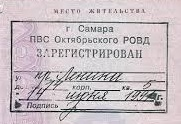 МЕСТО ЖИТЕЛЬСТВА
г Самара
ПВС Октябрьского РОВД
ЗАРЕГИСТРИРОВАН
ул. пр. Ленина
дом корп. кв.
июня 19
Подпись